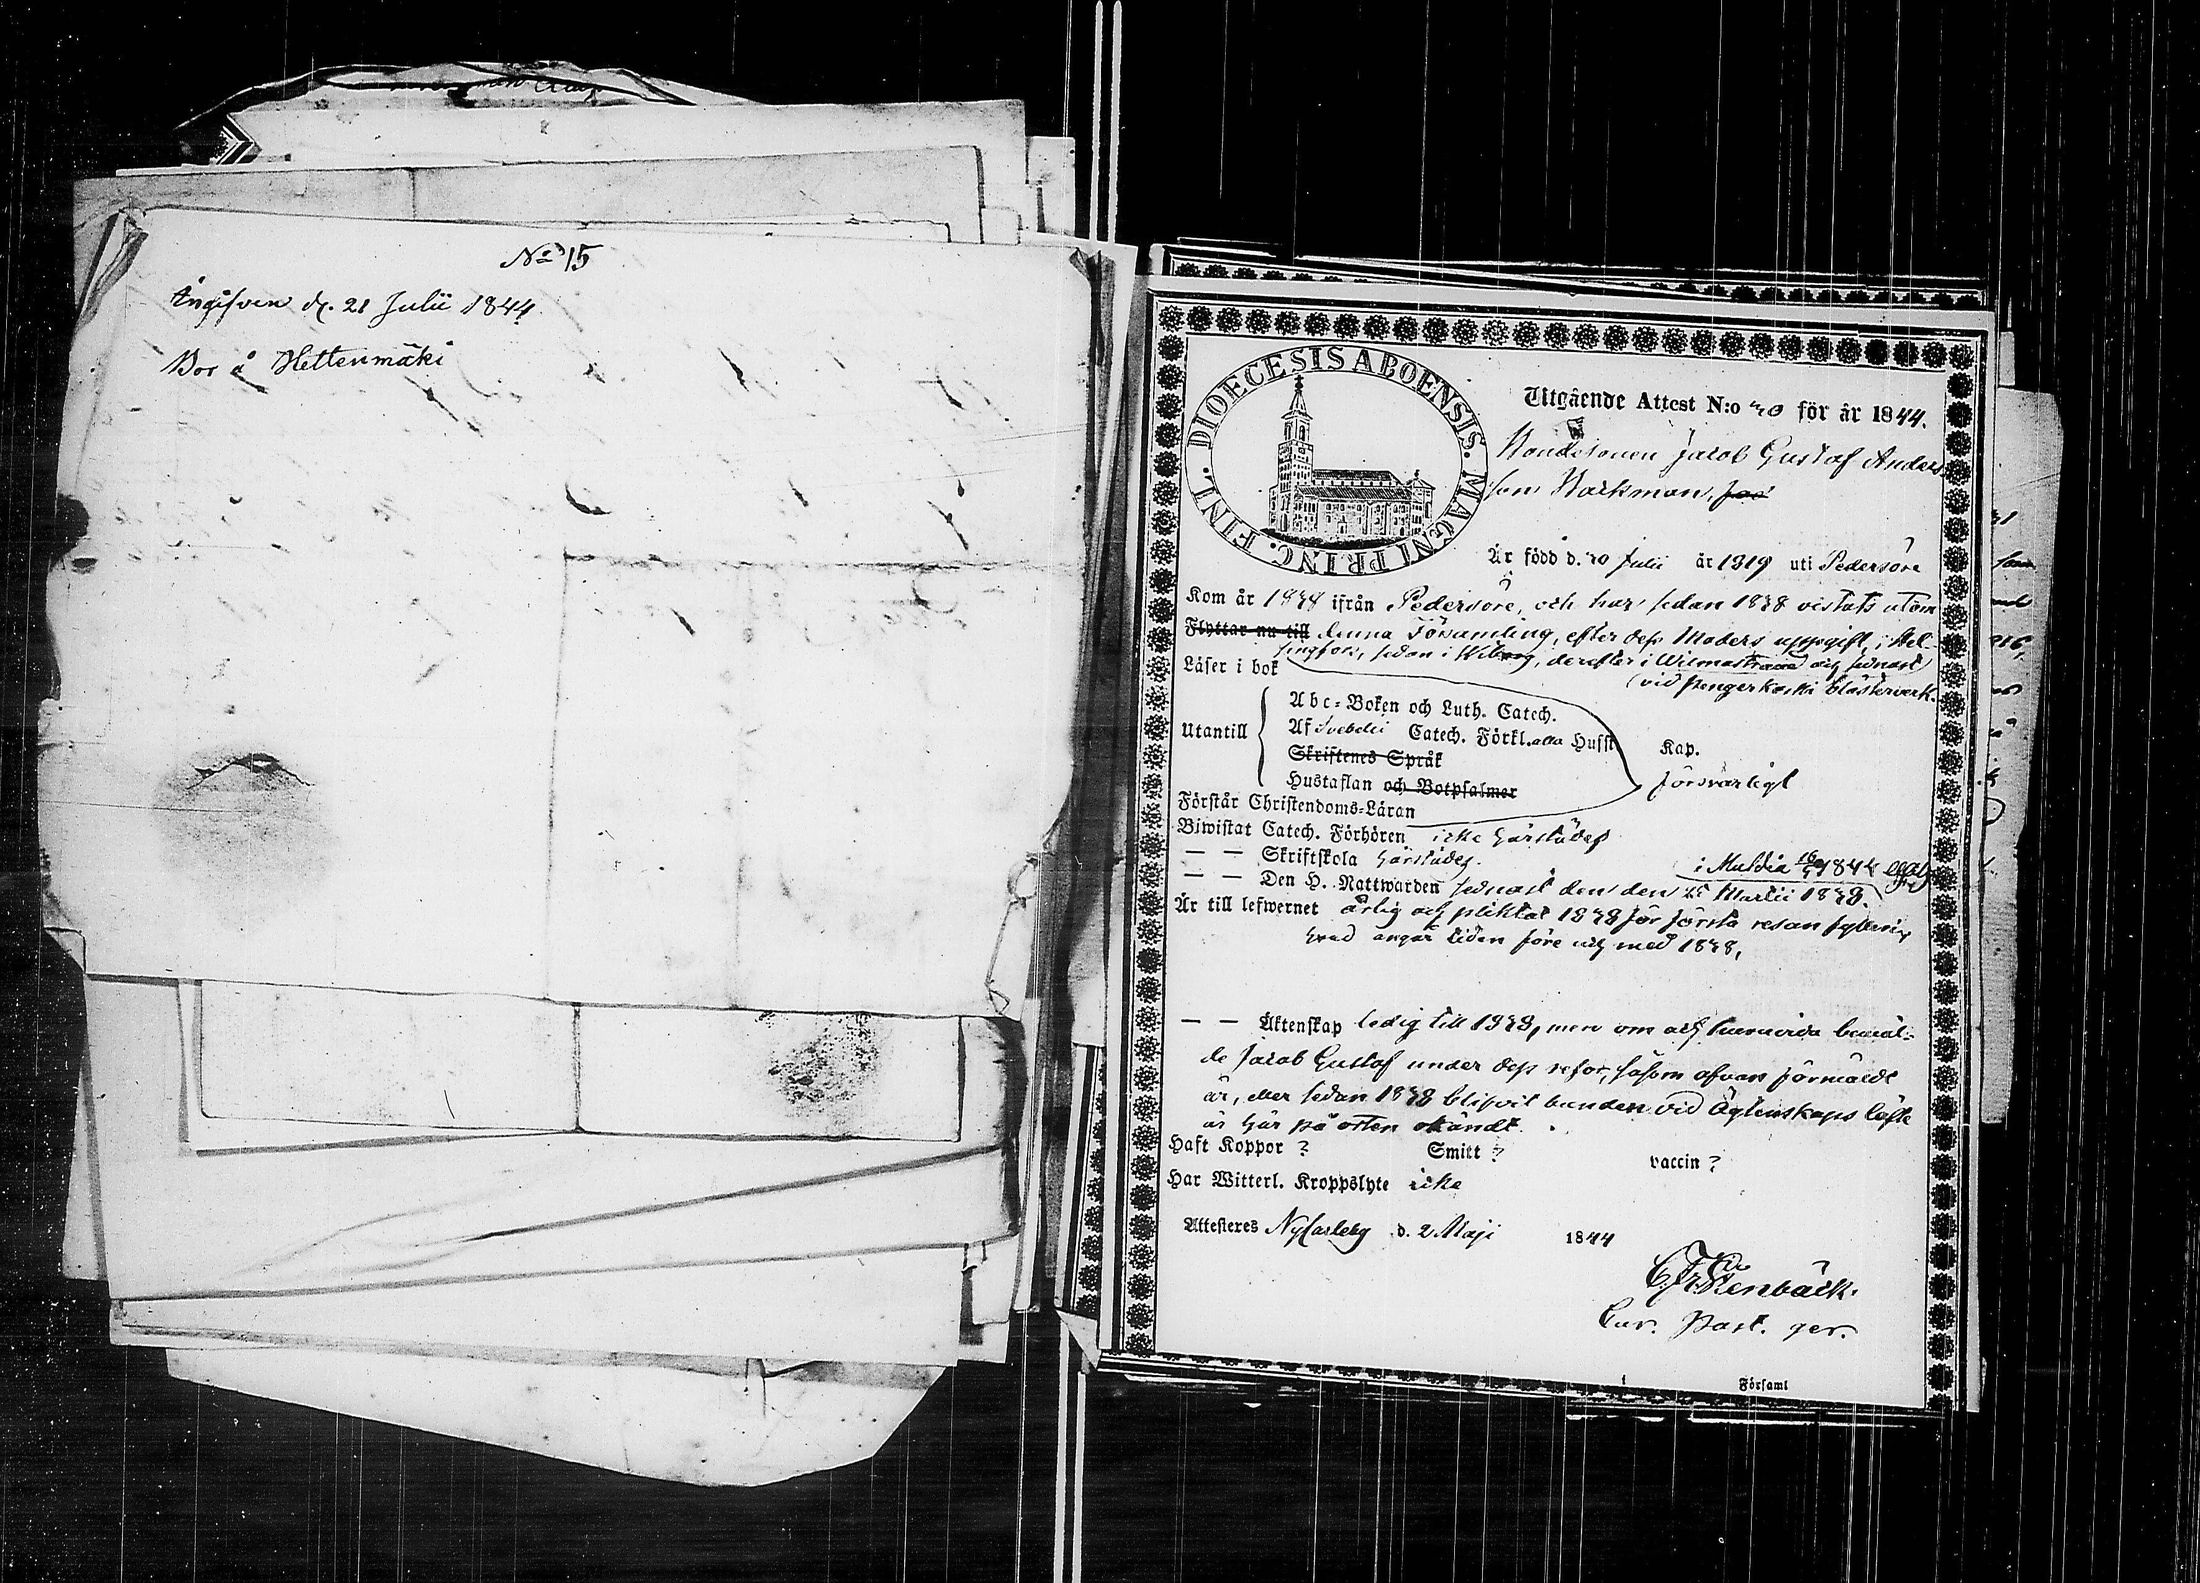 No 15
Ingifven d. 21 Julii 1844.
Bor å Hettenmäki
DIOECESIS ABOENSIS. MAGNI PRINC. FINL.
Utgående Attest N:o 30 för år 1844.
Bondesonen Jacob Gustaf Anders
son Backman,
Är född d. 20 Julii år 1819 uti Pedersöre
Kom år 1838 ifrån Pedersöre, och har sedan 1838 vistats utom
Flyttar nu till denna Församling, efter dess Moders uppgift, i Hel-
singfors, sedan i Wiborg, derefter i Wilmanstrand och sednast
Läser i bok
(vid Pengerkoski blästerverk.
Abc-Boken och Luth. Catech.
Utantill Af Svebelii Catech. Förkl. alla Husst Kap.
Skriftenes Språk
Hustaflan och Botpsalmer försvarligt
Förstår Christendoms-Läran
Biwistat Catech. Förhören icke härstädes
— — Skriftskola härstädes. i Muldia 1844
— — Den H. Nattwarden sednast den den 25 Martii 1838.
Är till lefwernet ärlig och pliktat 1838 för första resan
hvad angår tiden före och med 1838,
— — Äktenskap ledig till 1838, men om och huruvida bemäl-
de Jacob Gustaf under dess resor, såsom ofvan förmäldt
är, eller sedan 1838 blifvit bunden vid Ägtenskaps löfte
är här på orten okändt.
Haft Koppor ? Smitt ? vaccin ?
Har Witterl. Kroppslyte icke
Attesteres NyCarleby d. 2 Maji 1844
Stenbäck.
Cur. Past. ger.
Församl